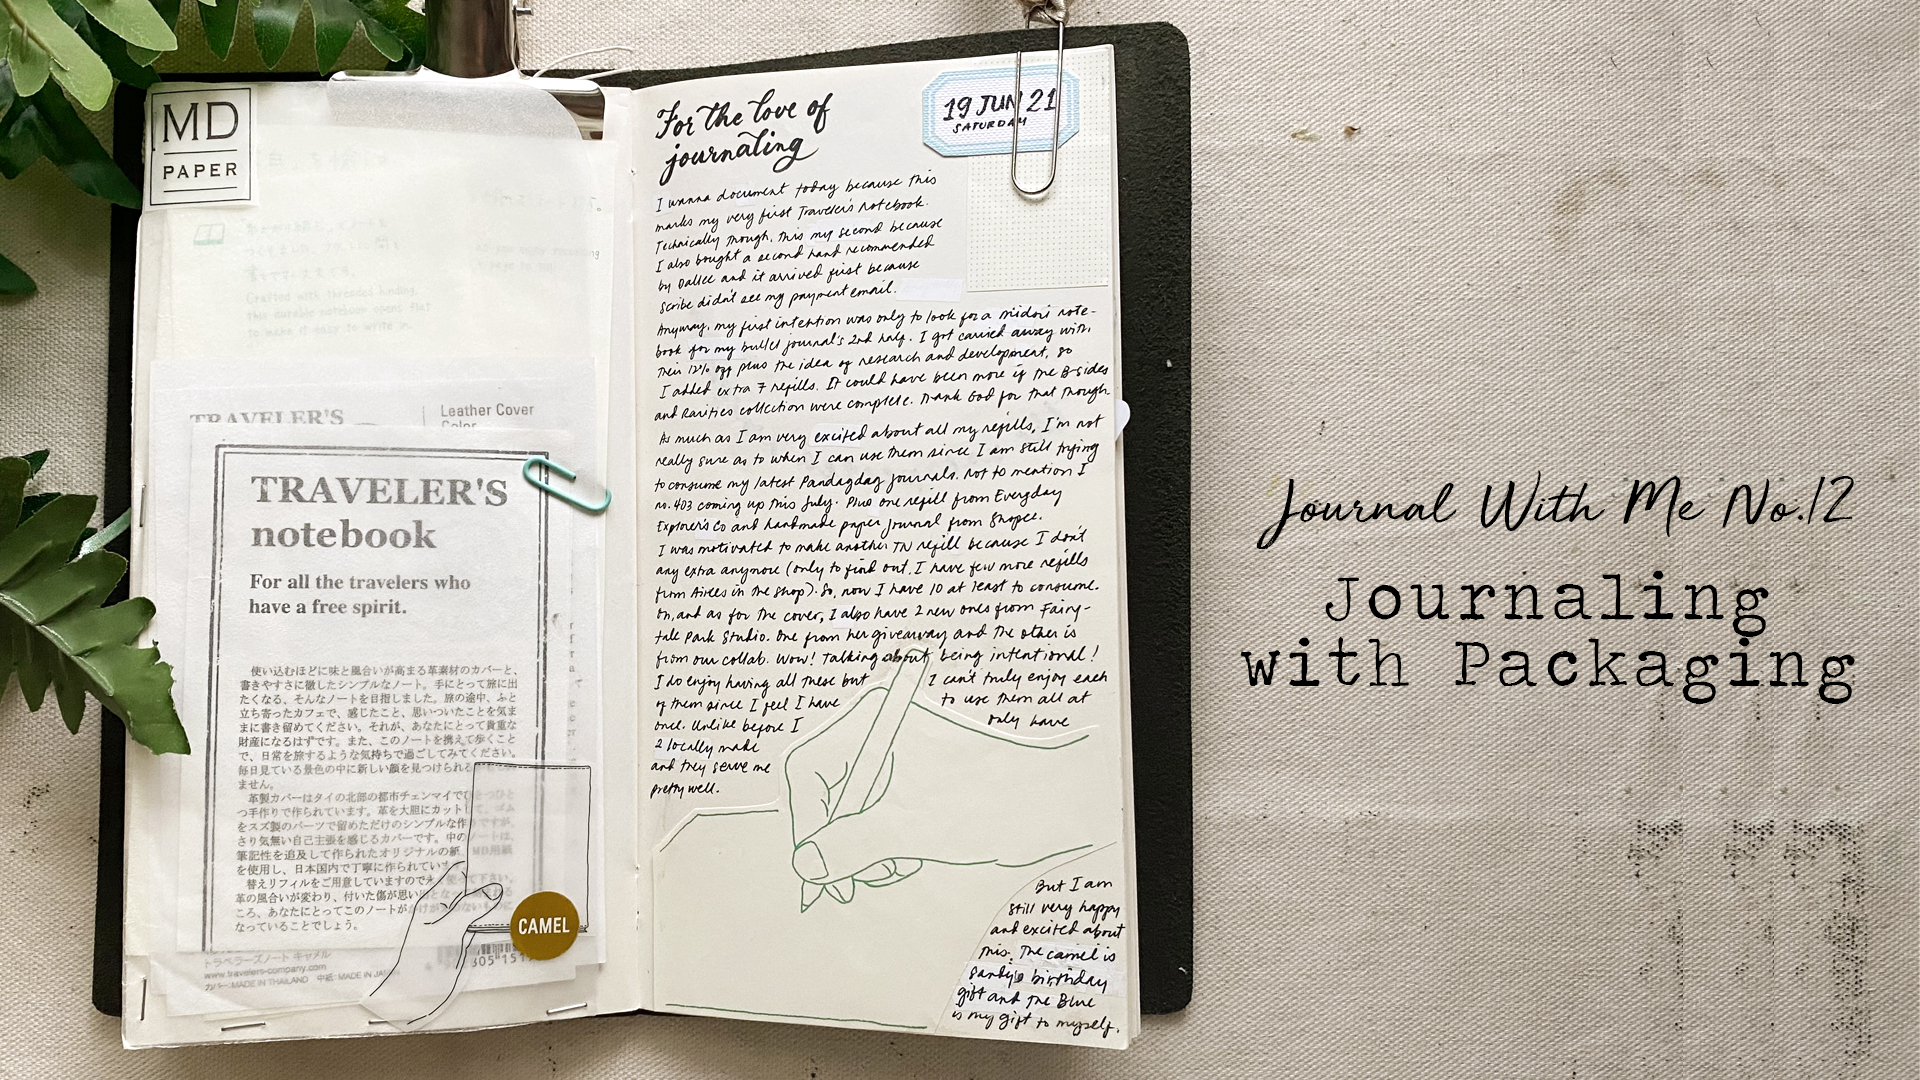 MD
PAPER
Crafted with threaded binding,
this durable notebook opens flat
to make it easy to write in.
TRAVELER'S
Leather Cover
Color
TRAVELER'S
notebook
For all the travelers who
have a free spirit.
使い込むほどに味と風合いが高まる革素材のカバーと、
書きやすさに徹したシンプルなノート。手にとって旅に出
たくなる、そんなノートを目指しました。旅の途中、ふと
立ち寄ったカフェで、感じたこと、思いついたことを気ま
まに書き留めてください。それが、あなたにとって貴重な
財産になるはずです。また、このノートを携えて歩くこと
で、日常を旅するような気持ちで過ごしてみてください。
毎日見ている景色の中に新しい顔を見つけられる
ません。
革製カバーはタイの北部の都市チェンマイでひとつひと
つ手作りで作られています。革を大胆にカットし
をスズ製のパーツで留めただけのシンプルな作
さり気無い自己主張を感じるカバーです。中のノートは、
筆記性を追及して作られたオリジナルの紙 MD用紙
を使用し、日本国内で丁寧に作られています
替えリフィルをご用意していますので
革の風合いが変わり、付いた傷が思い
ころ、あなたにとってこのノートが
なっていることでしょう。
CAMEL
トラベラーズノート キャメル
www.travelers-company.com
カバー:MADE IN THAILAND 中紙:MADE IN JAPAN
For the love of
journaling
19 JUN 21
SATURDAY
I wanna document today because this
marks my very first Traveler's Notebook.
Technically though, this my second because
I also bought a second hand recommended
by Dallee and it arrived first because
Scribe didn't see my payment email.
Anyway, my first intention was only to look for a midori note-
book for my bullet journal's 2nd half. I got carried away with
their 12% off plus the idea of research and development, so
I added extra 7 refills. It could have been more if the B-sides
and Rarities collection were complete. Thank God for that though.
As much as I am very excited about all my refills, I'm not
really sure as to when I can use them since I am still trying
to consume my latest Pandagdag journals. Not to mention I
no.403 coming up this July. Plus one refill from Everyday
Explorer's Co and handmade paper journal from Shopee.
I was motivated to make another TN refill because I don't
any extra anymore (only to find out, I have few more refills
from Airees in the shop). So, now I have 10 at least to consume.
Oh, and as for the cover, I also have 2 new ones from Fairy-
tale Park Studio. One from her giveaway and the other is
from our collab. Wow! Talking about being intentional!
I do enjoy having all these but I can't truly enjoy each
of them since I feel I have to use them all at
once. Unlike before I only have
2 locally made
and they serve me
pretty well.
But I am
still very happy
and excited about
this. The camel is
Sandy's birthday
gift and the Blue
is my gift to myself.
Journal With Me No.12
Journaling
with Packaging